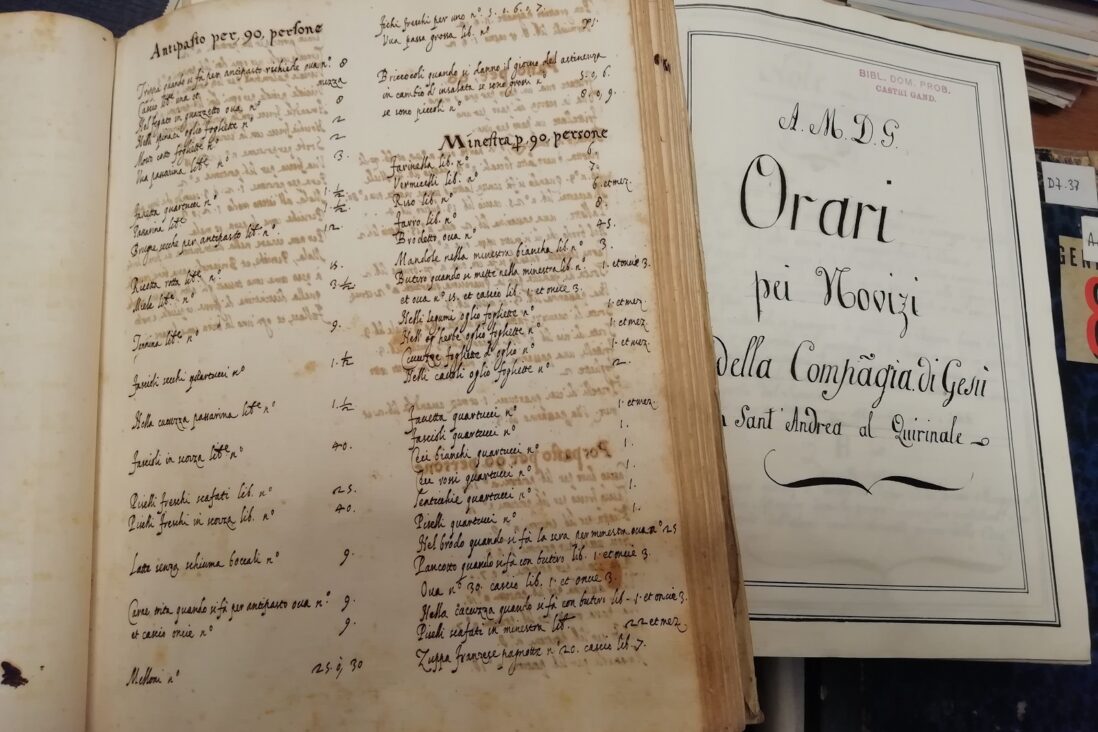 Antipasto per. 90. persone
Trippa quando si fà per antipasto rischiede oua nº. 8
Cascio libre una et mezza
Nel fegato in guazzetto oua nº 8
Nelli spinaci oglio fogliette nº 2
Mosto cotto fogliette nº 2
Vua passarina libre nº 3.
Fauetta quartucci nº 1. ½
Passarina libre 1. ½
Brugne secche per antipasto lib. nº 12.
Ricotta libre nº 15.
Miele libre nº 3 ½
Tonnina libre nº 9.
Fascioli secchi quartucci nº 1. ½
Nella cucuzza passarina libre nº 1. ½
Fascioli in scorza libre nº 40.
Piselli freschi scafati lib. nº 25.
Piselli freschi in scorza lib. nº 40.
Latte senza schiuma boccali nº 9.
Carne trita quando si fà per antipasto oua nº. 9.
et cascio oncie nº 9.
Melloni nº 25. ò, 30
Fichi freschi per uno nº 5. o. 6. o, 7.
Vua passa grossa lib. nº
Broccoli quando si danno il giorno del astinenza
in cambio d'insalata se sono grossi nº 5. o, 6.
se sono piccoli nº 8. o, 9.
Minestra p. 90. persone
Farinella lib. nº 6.
Vermicelli lib. nº 7.
Riso lib. nº 6. et mez.
Farro lib. nº 8.
Brodetto oua nº 45.
Mandole nella minestra biancha lib. nº 3.
Butiro quando si mette nella minestra lib. nº 1. et oncie 3.
et oua nº 15. et cascio lib. 1. et oncie 3.
Nelli legumi oglio fogliette nº 1. et mez.
Nell herbe oglio fogliette nº 1. et mez
Cucuzze fogliette d'oglio nº 1. et mez
Nelli cauoli oglio fogliette nº 2.
Fauetta quartucci nº 1. et mez.
Fascioli quartucci nº 1.
Ceci bianchi quartucci nº 1.
Ceci rossi quartucci nº 1.
Lenticchie quartucci nº 1.
Piselli quartucci nº 1.
Nel brodo quando si fà la sera per minestra oua nº 25
Pancotto quando si fà con butiro lib. 1. et oncie 3.
Oua nº 30. cascio lib. 1. et oncie 3.
Nella cacuzza quando si fà con butiro lib. 1. et oncie 3.
Piselli scafati in minestra lib. 22 et mez
Zuppa franzese pagnotte nº 20. cascio lib. 7.
BIBL. DOM. PROB.
CASTRI GAND.
A. M. D. G.
Orari
pei Novizi
della Compãgia di Gesù
Sant' Andrea al Quirinale
D7.37